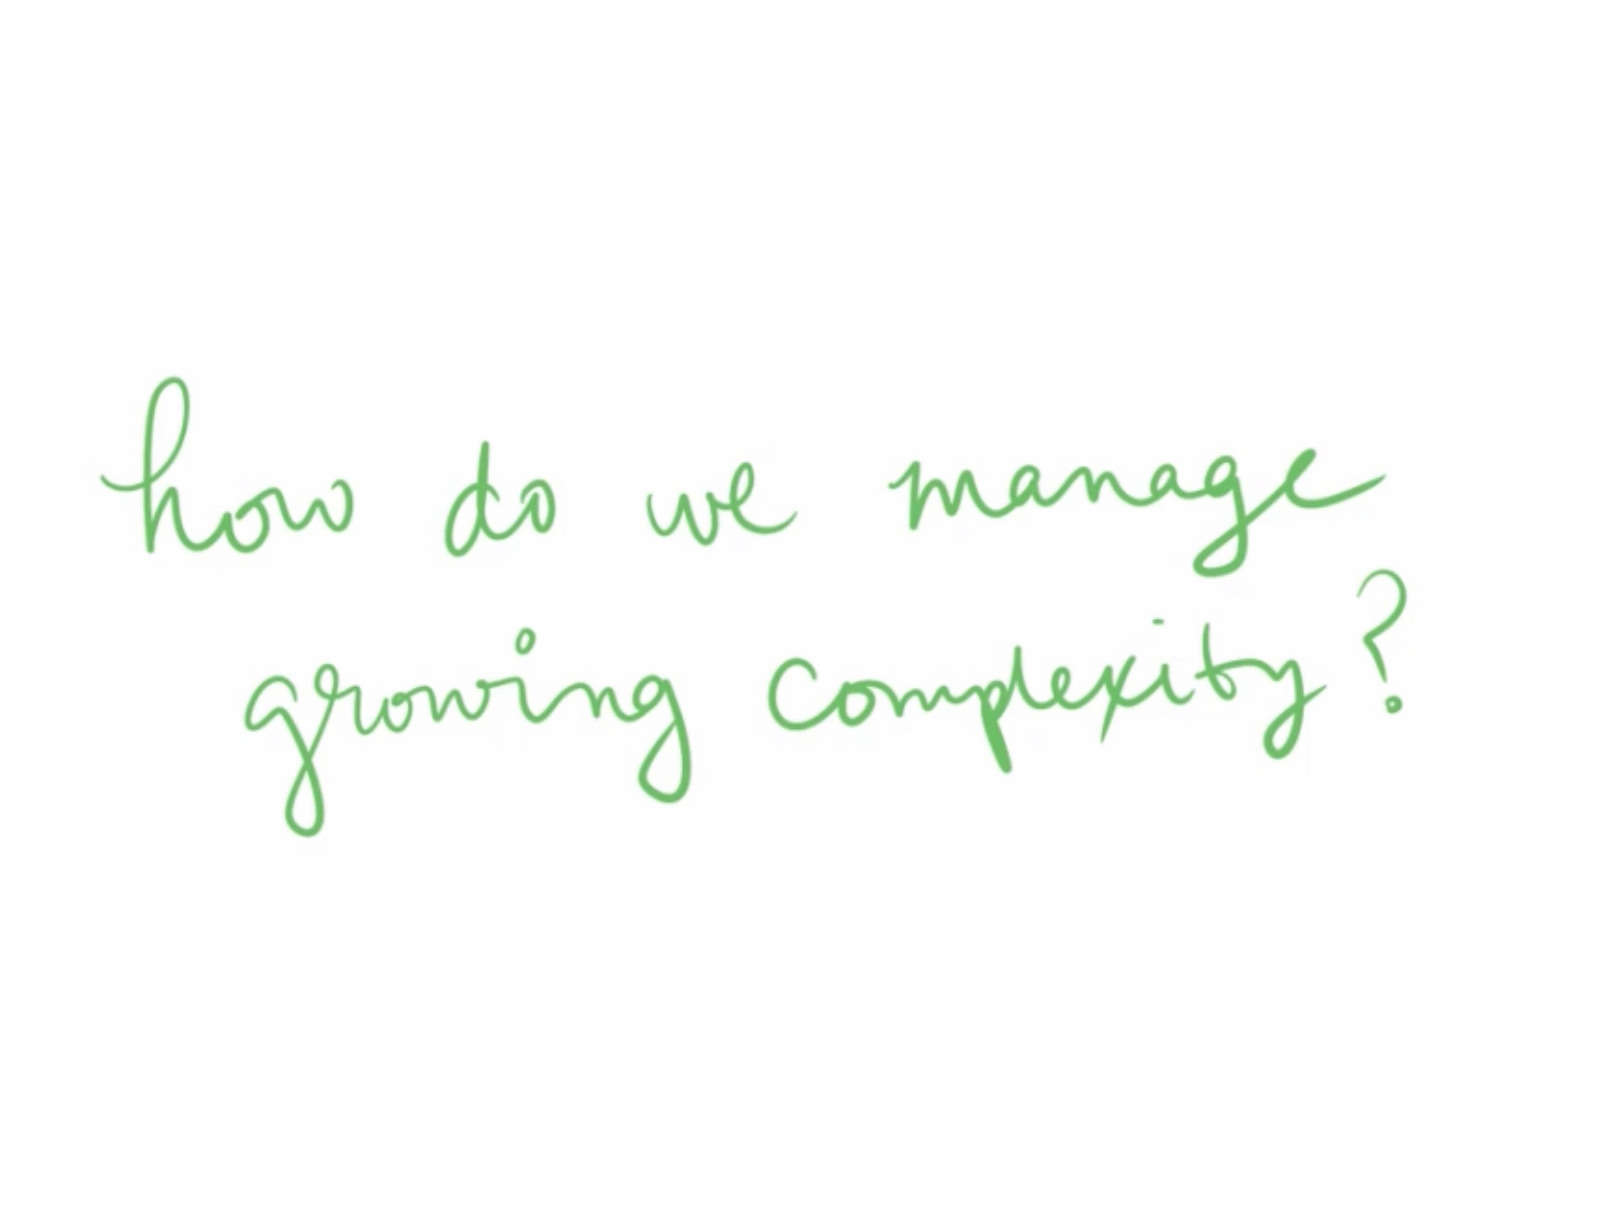 how do we manage
growing complexity?